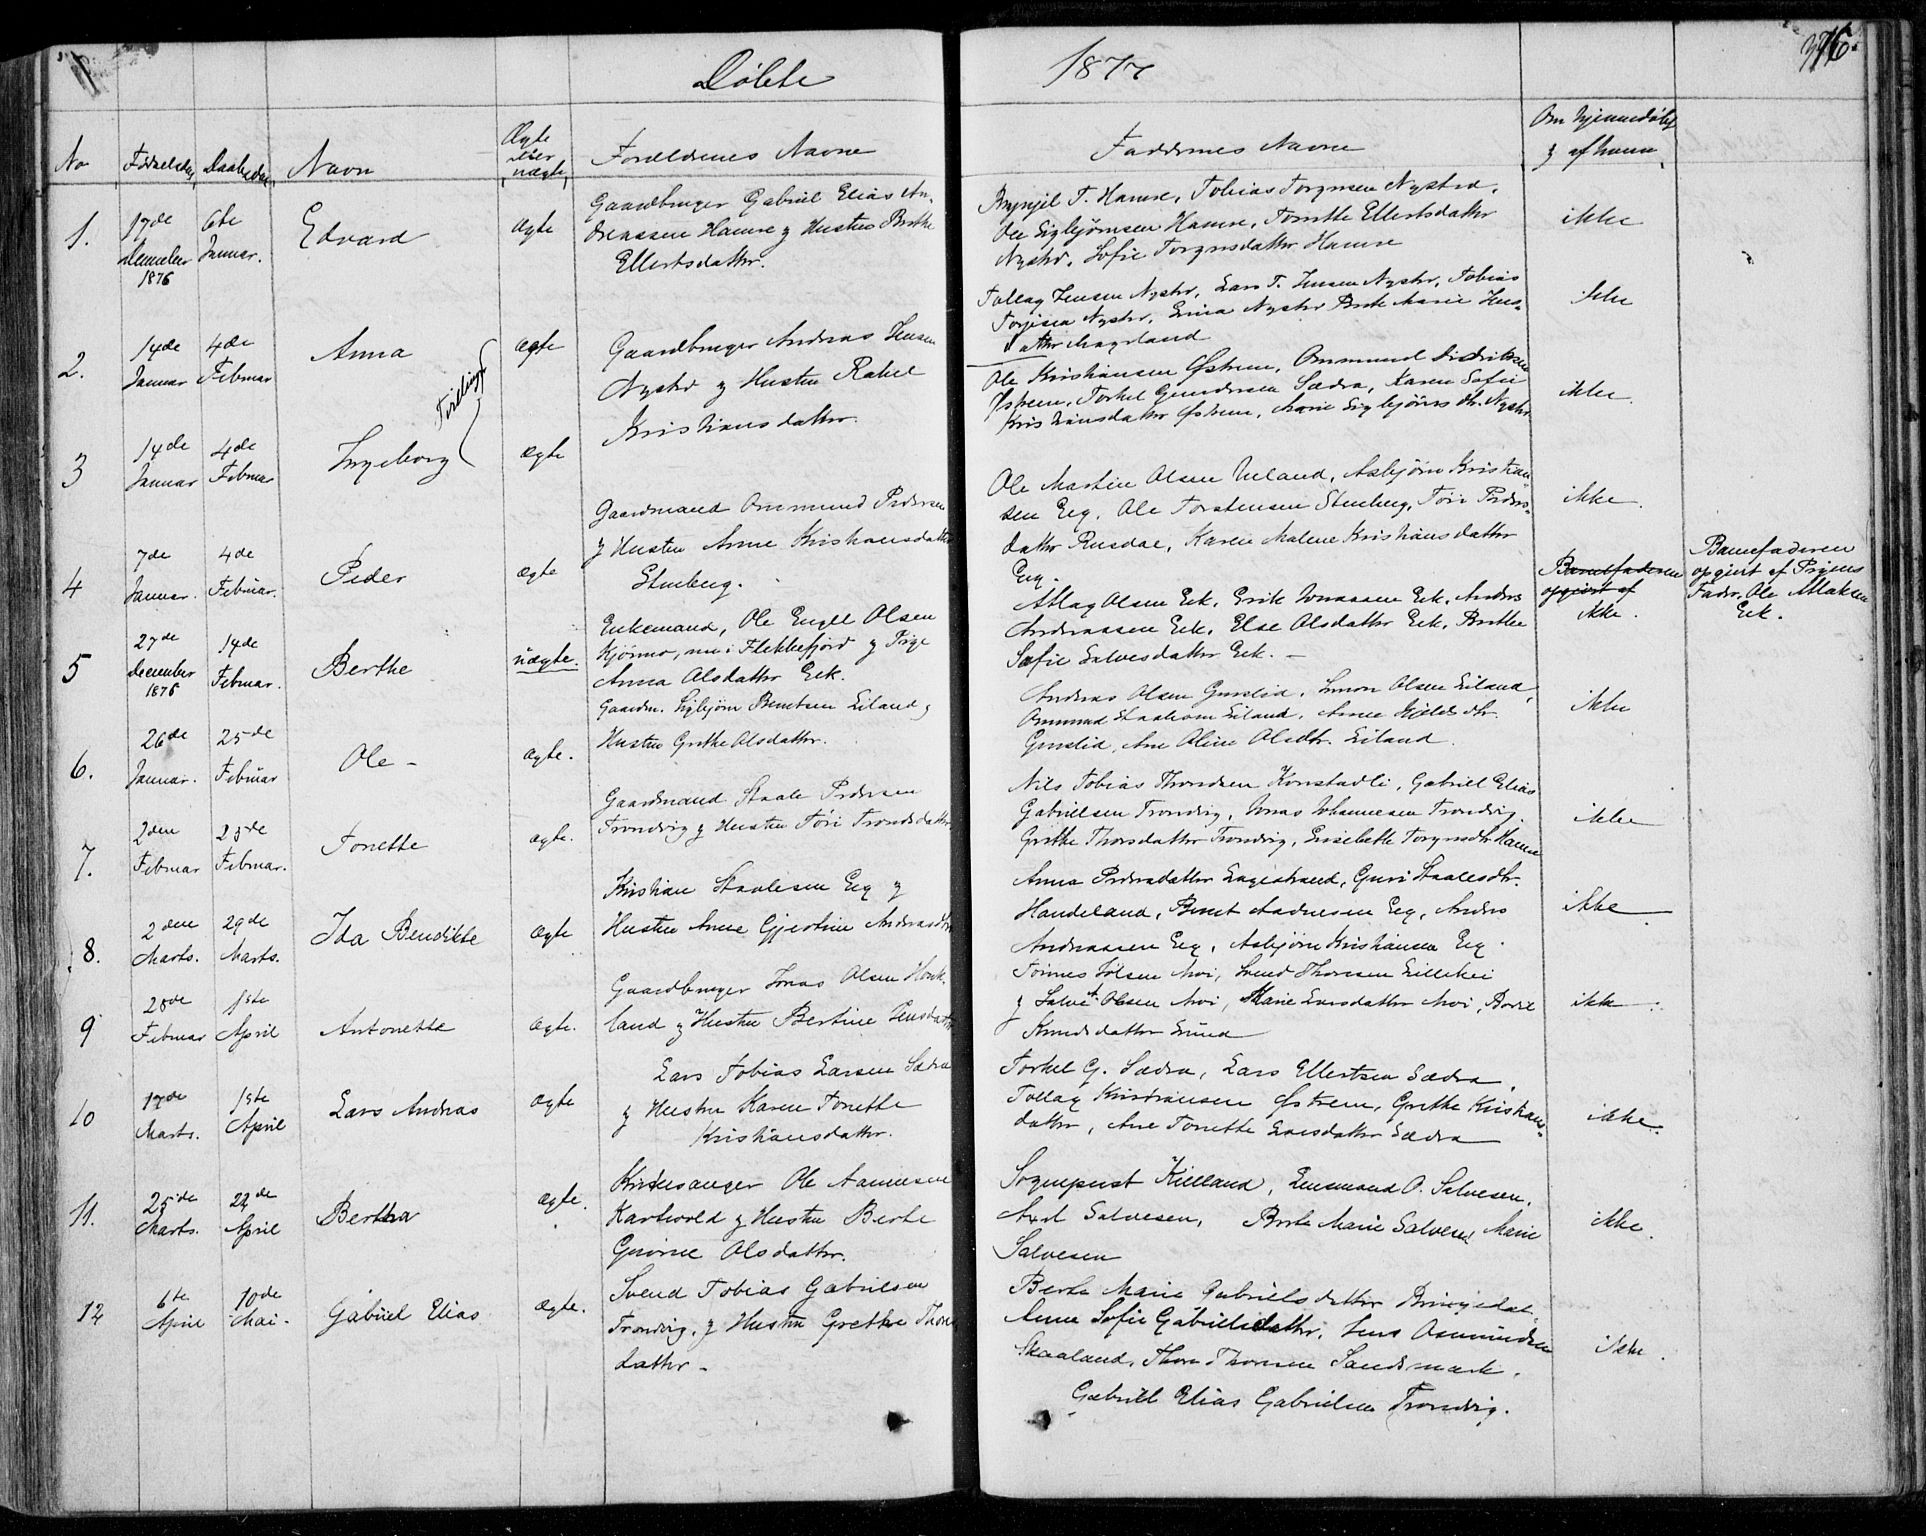 Döbte 1877
376.
No
Fødselsdag
Daabsdag
Navn
Ægte eller uægte
Forældrenes Navne
Faddernes Navne
Om hjemmedøbt
& af hvem
1.
17de December 1876
6te Januar.
Edvard
Ægte
Gaardbruger Gabriel Elias An-
dreassen Hamre & Hustru Berthe
Ellertsdatter.
T. Hamre, Tobias Torgersen Nystrø,
Ole Sigbjørnsen Hamre, Tonette Ellertsdatter
Nystrø, Sofie Torgersdatter Hamre
ikke
2.
14de Januar
4de Februar
Anna
Tvillinger
ægte
Gaardbruger Andreas Jensen
Nystrø & Hustru Rakel
Kristiansdatter.
Tollag Jensen Nystrø, Lars T. Jensen Nystrø, Tobias
Nystrø, Nystrø Berte Marie Jens-
datter
ikke
3
14de Januar
4de Februar
Ingeborg
Ægte
Ole Kristiansen Østrem, Ommund Didriksen
Østrem, Torkel Gundersen Sædra, Karen Sofie
Kristiansdatter Østrem, Marie Sigbjørnsdtr. Nystrø
ikke.
4
7de Januar.
4de Februar.
Peder
Ægte
Gaardmand Ommund Pedersen
& Hustru Anne Kristiansdatter
Stenberg.
Ole Martin Olsen Ueland, Asbjørn Kristian-
sen Eeg, Ole Torstensen Stenberg, Tori Peders-
datter Rusdal, Karen Malene Kristiansdatter
Eeg.
ikke.
5
27de December 1876
14de Februar.
Berthe
uægte.
Enkemand, Ole Engel Olsen
Kjørmo, nu i Flekkefjord & Pige
Anna Olsdatter Eek.
Atlag Olsen Eek, Erik Jonassen Eek, Anders
Andreassen Eek, Else Olsdatter Eek, Berthe
Sofie Salvesdatter Eek. —
Barnefaderen
opgivet af
ikke.
Barnefaderen
opgivet af Pigens
Fader, Ole Atlaksen
Eek.
6.
26de Januar.
25de Februar
Ole –
Ægte.
Gaardm. Sigbjørn Berntsen Eiland &
Hustru Grethe Olsdatter.
Andreas Olsen Gursliø, Simon Olsen Eiland,
Ommund Eiland, Anne
Gurslid, Ane Oline Olsdtr. Eiland.
ikke
7.
2den Februar
Februar.
Tonette
ægte.
Gaardmand Staale Pedersen
Trondvig & Hustru Tori Trondsdatter
Nils Tobias Thorsen Konstadli, Gabriel Elias
Gabrielsen Trondvig, Jonas Johannesen Trondvig,
Grethe Thorsdatter Trondvig, Lisebette Torgersdtr Hamre
ikke
8.
2den Marts.
29de Marts.
Ida Bendikte
Ægte
Kristian Staalesen Eeg &
Hustru Anne Gjertine Andreasdtr
Anna Pedersdatter Lagestrand, Guri Staalesdtr.
Handeland, Bernt Aadnesen Eeg, Anders
Andreassen Eeg, Asbjørn Kristiansen Eeg.
ikke
9
28de Februar
1ste April
Antonette
Ægte.
Gaardbruger Jonas Olsen Hauk-
land & Hustru Bertine Jensdatter
Tønnes Olsen Moi, Svend Thorsen Lillehei
& Salve Olsen Moi, Marie Larsdatter Moi, Borsil
Knudsdatter Eiund
ikke.
10
17de Marts.
1ste April
Lars Andreas
Ægte
Lars Tobias Larsen Sædra
& Hustru Karen Tonette
Kristiansdatter.
Torkel G. Sædra, Lars Ellertsen Sædra,
Tollag Kristiansen Østrem, Grethe Kristians-
datter, Ane Tonette Larsdatter Sædra
ikke.
11.
25de Marts.
22de April
Bertha
Ægte.
Kirkesanger Ole Aanensen
Kartvold & Hustru Berte
Gurine Olsdatter.
Sogneprest Kielland, Lensmand O. Salvesen,
Axel Salvesen, Berte Marie Salvesen, Marie
Salvesen
ikke.
12
6te April
10de Mai.
Gabriel Elias
Ægte.
Svend Tobias Gabrielsen
Trondvig, & Hustru Grethe Thors-
datter –
Berte Marie Gabrielsdatter Bringedal,
Anne Sofie Gabrielsdatter, Jens Osmundsen
Skaaland, Thore Thorsen Sandsmark,
Gabriel Elias Gabrielsen Trondvig.
ikke.